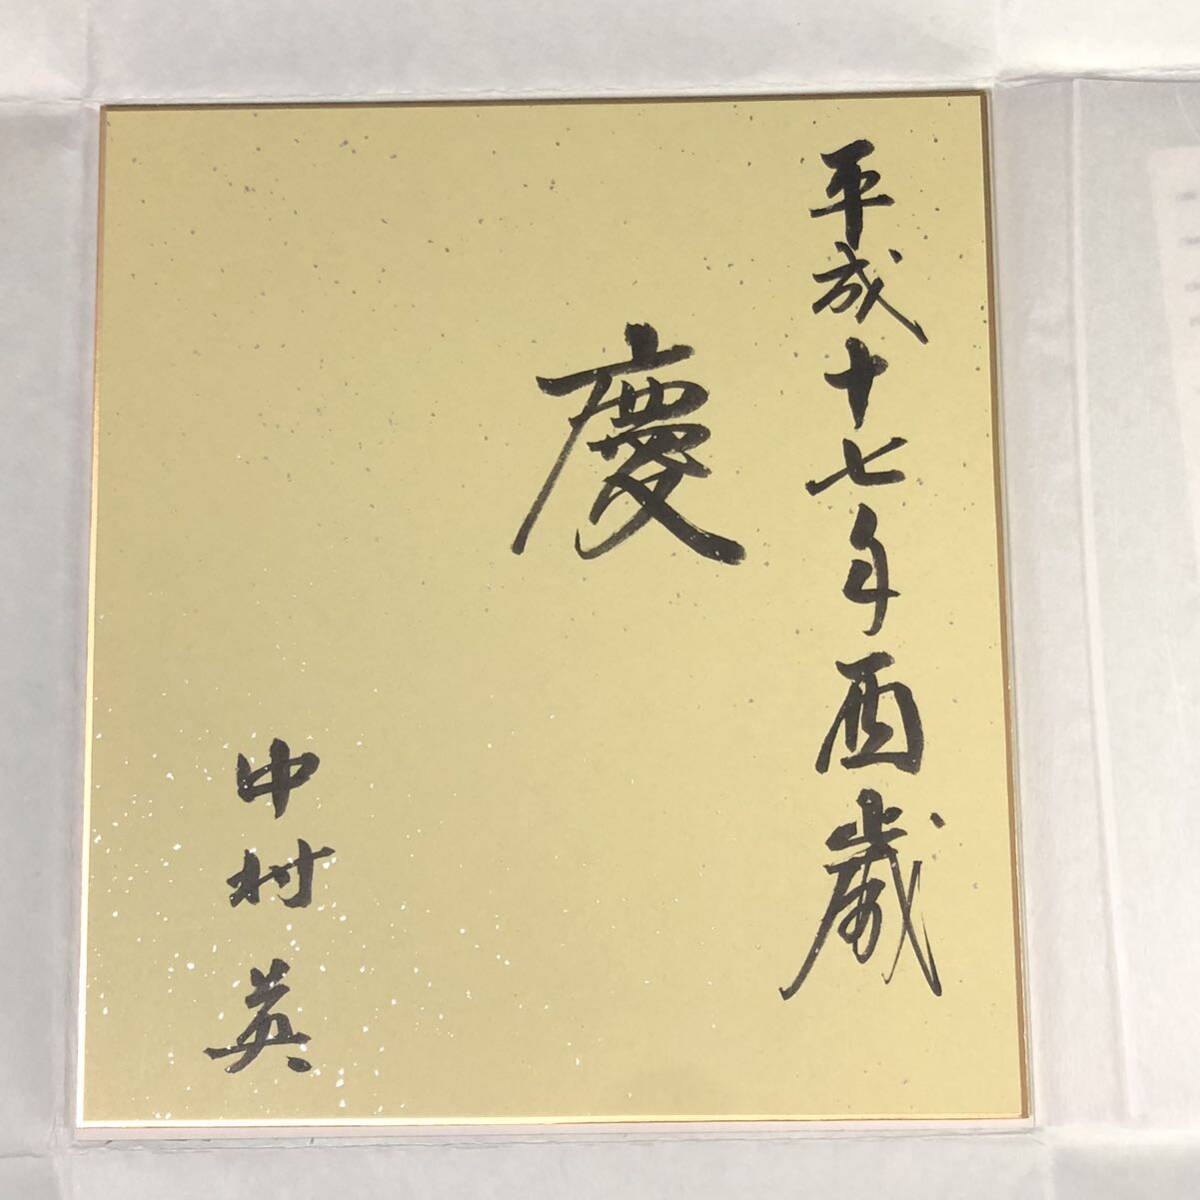 平成十七年酉歳
慶
中村英